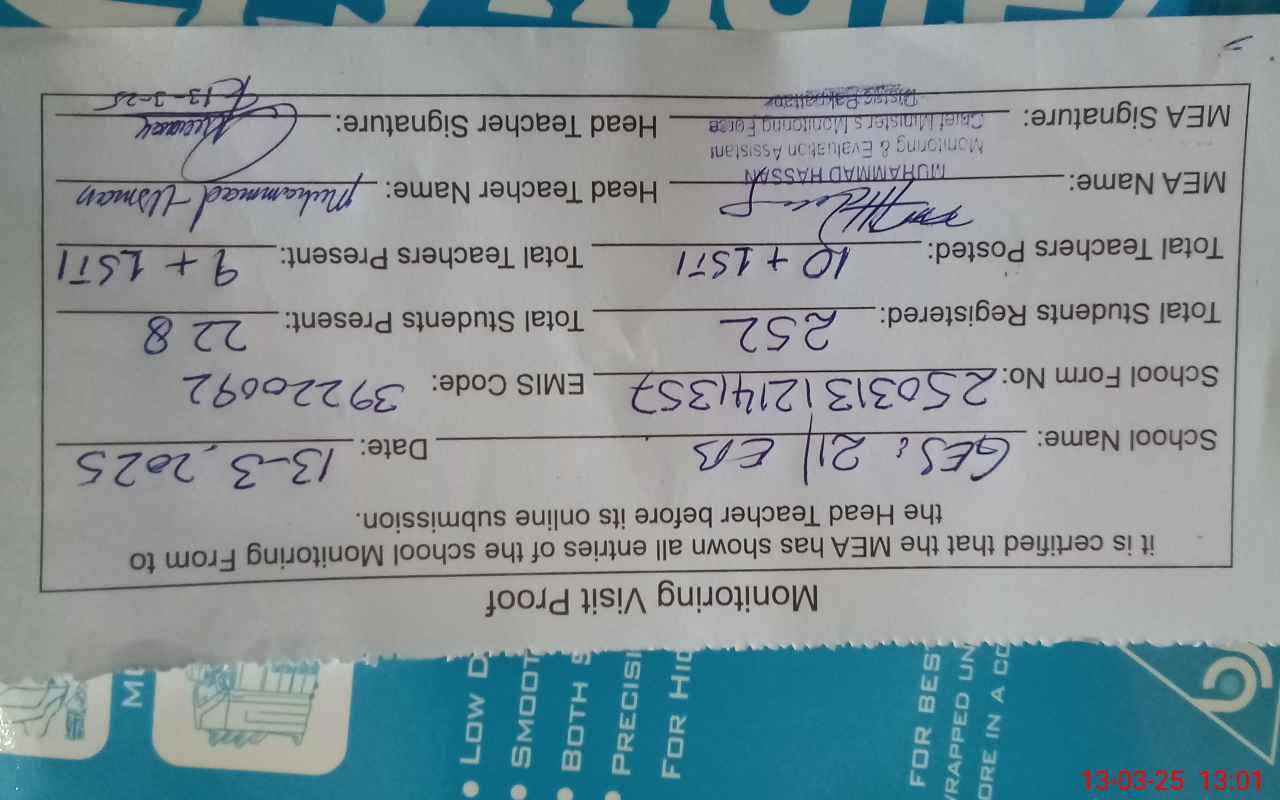 Monitoring Visit Proof
it is certified that the MEA has shown all entries of the school Monitoring From to
the Head Teacher before its online submission.
School Name: GES: 21/EB Date: 13-3-2025
School Form No: 25031312141357 EMIS Code: 39220092
Total Students Registered: 252 Total Students Present: 228
Total Teachers Posted: 10 + 1 STI Total Teachers Present: 9 + 1 STI
MEA Name: MUHAMMAD HASSAN Head Teacher Name: Muhammad Usman
Monitoring & Evaluation Assistant
MEA Signature: Chief Minister's Monitoring Force Head Teacher Signature:
Distt: Pakpattan
13-3-25
LOW D
SMOOT
BOTH S
PRECISI
FOR HIG
FOR BEST
WRAPPED UN
ORE IN A CO
13-03-25 13:01